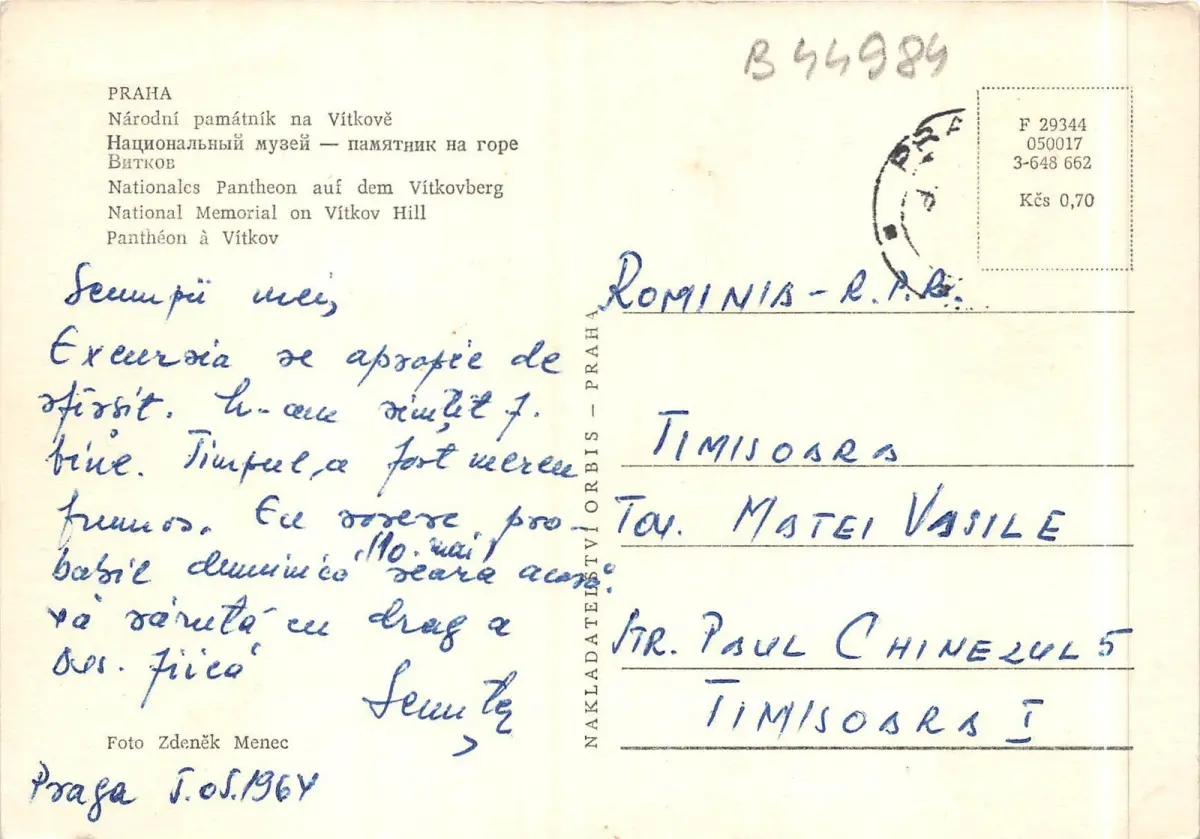 B 44984
PRAHA
Národní památník na Vítkově
Национальный музей — памятник на горе
Витков
Nationales Pantheon auf dem Vítkovberg
National Memorial on Vítkov Hill
Panthéon à Vítkov
F 29344
050017
3-648 662
Kčs 0,70
PRA
Scumpii mei,
Excursia se apropie de
sfîrsit. M-am simțit f.
bine. Timpul a fost mereu
frumos. Eu sosesc pro-
babil duminică (10. mai) seara acasă.
Vă sărută cu drag a
dvs. fiică
NAKLADATELSTVÍ ORBIS – PRAHA
ROMINIA – R.P.R.
TIMISOARA
Tov. MATEI VASILE
STR. PAUL CHINEZUL 5
TIMISOARA I
Foto Zdeněk Menec
Praga 5.05.1964